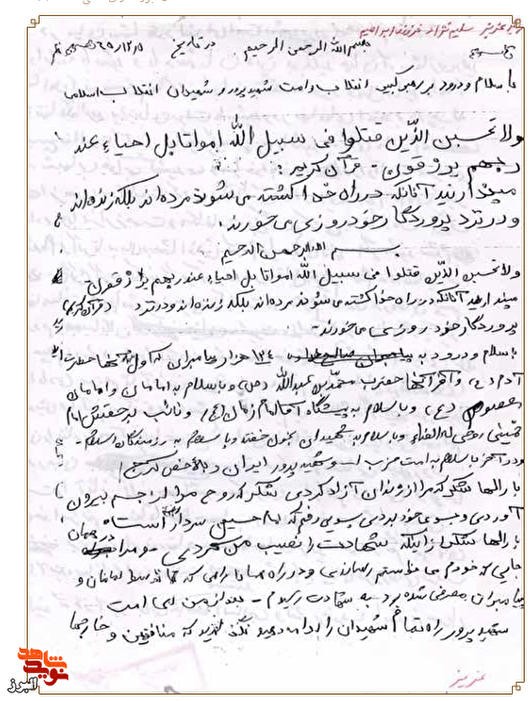 سلیم نژاد فرزند ابراهیم
بسم الله الرحمن الرحیم در تاریخ
با سلام و درود بر رهبر کبیر انقلاب و امت شهید پرور و شهیدان انقلاب اسلامی
ولا تحسبن الذین قتلوا فی سبیل الله امواتا بل احیاء عند
ربهم یرزقون - قرآن کریم:
میپندارید آنانکه در راه خدا کشته می شوند مرده اند بلکه زنده اند
و در نزد پروردگار خود روزی می خورند.
بسم الله الرحمن الرحیم
ولا تحسبن الذین قتلوا فی سبیل الله امواتا بل احیاء عند ربهم یرزقون
میندارید آنانکه در راه خدا کشته می شوند مرده اند بلکه زنده اند و در نزد (قرآن کریم)
پروردگار خود روزی می خورند.
با سلام و درود به ۱۲۴ هزار پیامبران که اول آنها حضرت
آدم (ع) و آخر آنها حضرت محمد بن عبدالله (ص) و با سلام به امامان و امامان
معصوم (ع) و با سلام به پیشگاه آقا امام زمان (عج) و نائب بر حقش امام
خمینی روحی له الفداء و با سلام به شهیدان بخون خفته و با سلام به رزمندگان اسلام
و در آخر با سلام به امت حزب الله و شهید پرور ایران و بالاخص کرج
بارالها شکر که مرا از زندان آزاد کردی شکر که روح مرا از جسم بیرون
آوردی و بسوی خود بردی بسوی رفتم که امام حسین سردار است
بارالها شکر از اینکه شهادت را نصیب من کردی و مرا در همان
جایی که خودم می خواستم رساندی و در راه
پیامبران معرفی شده بود به شهادت رسیدم - بعد از من ای امت
شهید پرور راه تمام شهیدان را ادامه دهید نگذارید که منافقین و خارجها
عزیز
شاهد
نوید
البرز